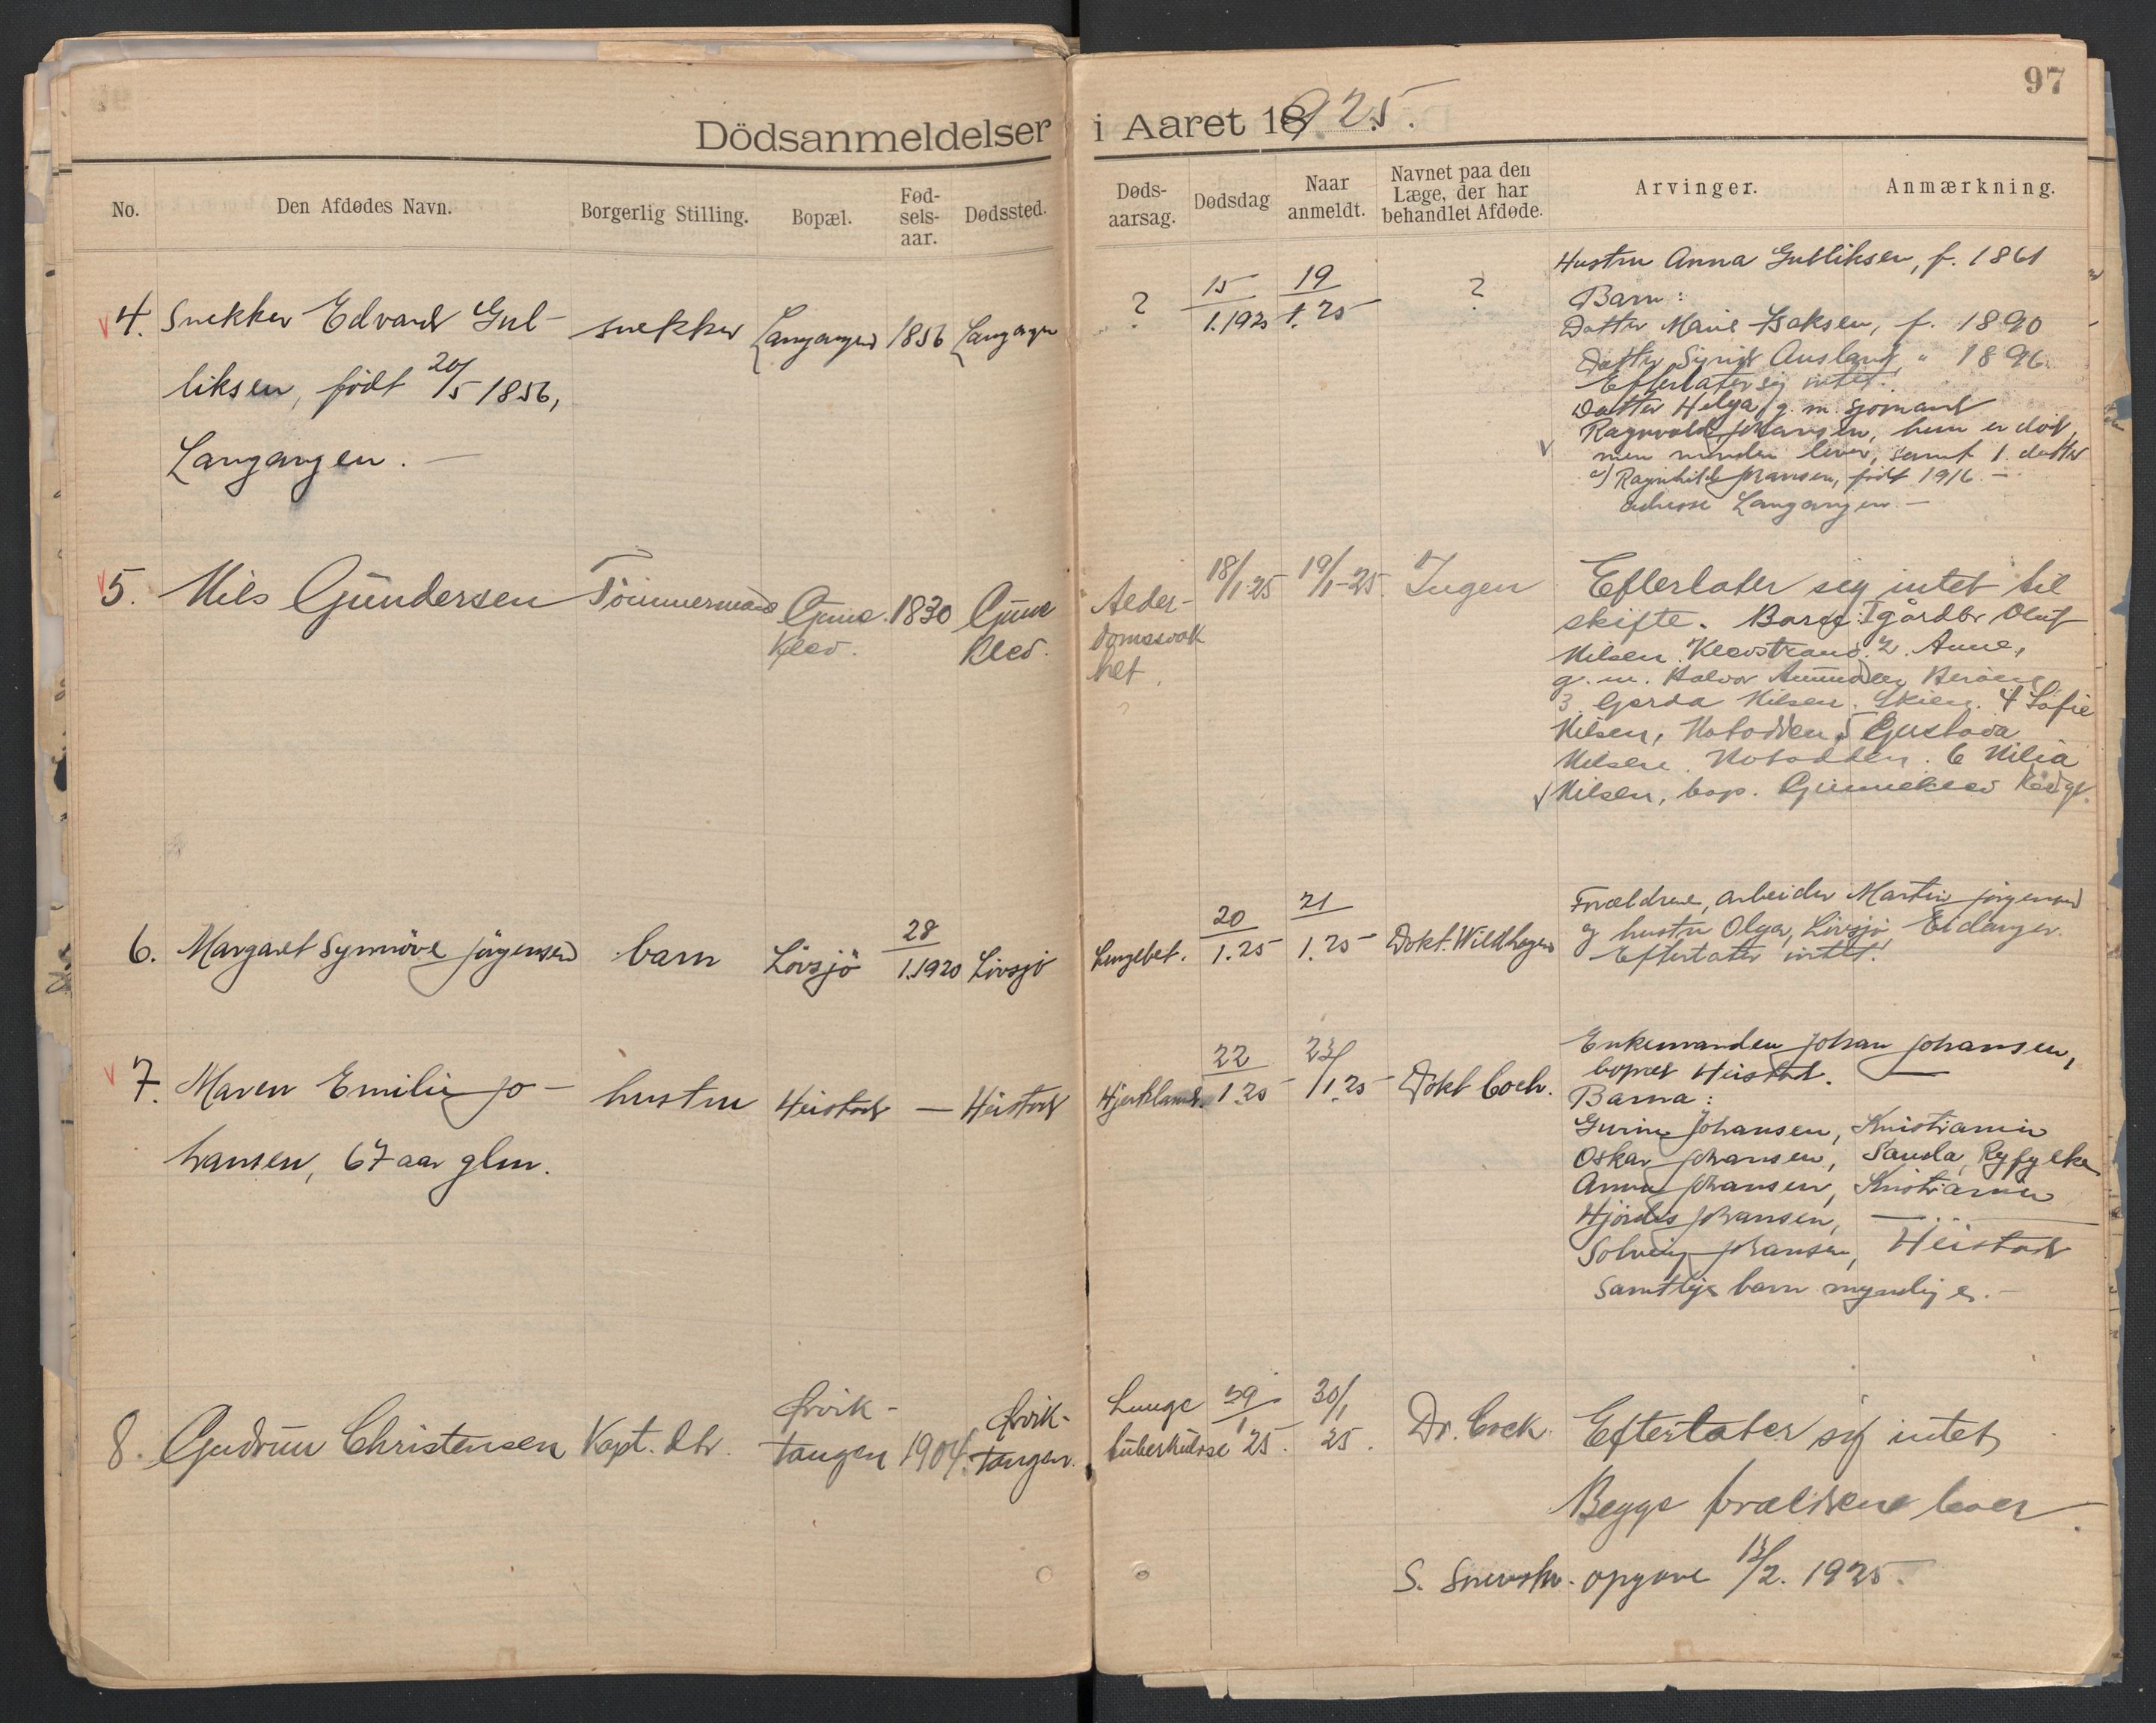 97
Dödsanmeldelser i Aaret 1925.
No. Den Afdødes Navn. Borgerlig Stilling. Bopæl. Fød-sels-aar. Dødssted. Døds-aarsag. Dødsdag Naar anmeldt. Navnet paa den Læge, der har behandlet Afdøde. Arvinger. Anmærkning.
4. Snekker Edvard Gul- snekker Langangen 1856 Langangen ? 15/1.1925 19/1.25 ?
liksen, født 20/5 1856,
Langangen. —
Hustru Anna Gulliksen, f. 1861
Barn:
Datter Marie Isaksen, f. 1890
Datter Sigrid Ausland, " 1896.
Efterlater sig intet.
Datter Helga g. m. sjømand
Ragnvald Johansen, hun er død,
men manden lever, samt 1 datter
a) Ragnhild Johansen, født 1916 —
adresse Langangen. —
5. Nils Gundersen Tömmermand Gune 1830 Gune Alder- 18/1-25 19/1-25 Ingen
klev. klev. domssvak
het.
Efterlater sig intet til
skifte. Barn: 1 gårdbr Oluf
Nilsen Klevstrand. 2. Anne,
g. m. Halvor Amundsen
3 Gerda Nilsen. Skien. 4 Sofie
Nilsen, Notodden. 5 Gustava
Nilsen. Notodden. 6 Nilia
Nilsen, bop. Gunneklev
6. Margaret Synnöve Jörgensen barn Lövsjö 28/1.1920 Lövsjö Lungebet. 20/1.25 21/1.25 Dokt. Wildhagen
Forældrene, arbeider Martin Jörgensen
og hustru Olga, Lövsjö, Eidanger.
Efterlater intet!
7. Maren Emilie Jo- hustru Heistad — Heistad Hjerteslamh. 22/1.25 23/1.25 Dokt Coch.
hansen, 67 aar glm.
Enkemanden Johan Johansen,
bopæl Heistad.
Barna:
Johansen, Kristiania
Oskar Johansen, Sauda, Ryfylke
Anna Johansen, Kristiania
Hjördis Johansen, — " —
Solveig Johansen, Heistad
Samtlige barn myndige. —
8. Gudrun Christensen Kapt. dtr. Örvik- 1904. Örvik- Lunge 29/1 30/1 Dr. Cock
tangen tangen. tuberkulose 25. 25.
Efterlater sig intet
Begge forældrene lever.
S. opgave 13/2. 1925.